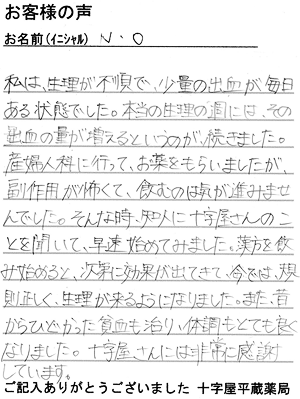 お客様の声
お名前(イニシャル) N・O
私は、生理が不順で、少量の出血が毎日
ある状態でした。本当の生理の週には、その
出血の量が増えるというのが、続きました。
産婦人科に行って、お薬をもらいましたが、
副作用が怖くて、飲むのは気が進みませ
んでした。そんな時、知人に十字屋さんのこ
とを聞いて、早速始めてみました。漢方を飲
み始めると、次第に効果が出てきて、今では、規
則正しく、生理が来るようになりました。また、昔
からひどかった貧血も治り、体調もとても良く
なりました。十字屋さんには非常に感謝
しています。
ご記入ありがとうございました 十字屋平蔵薬局